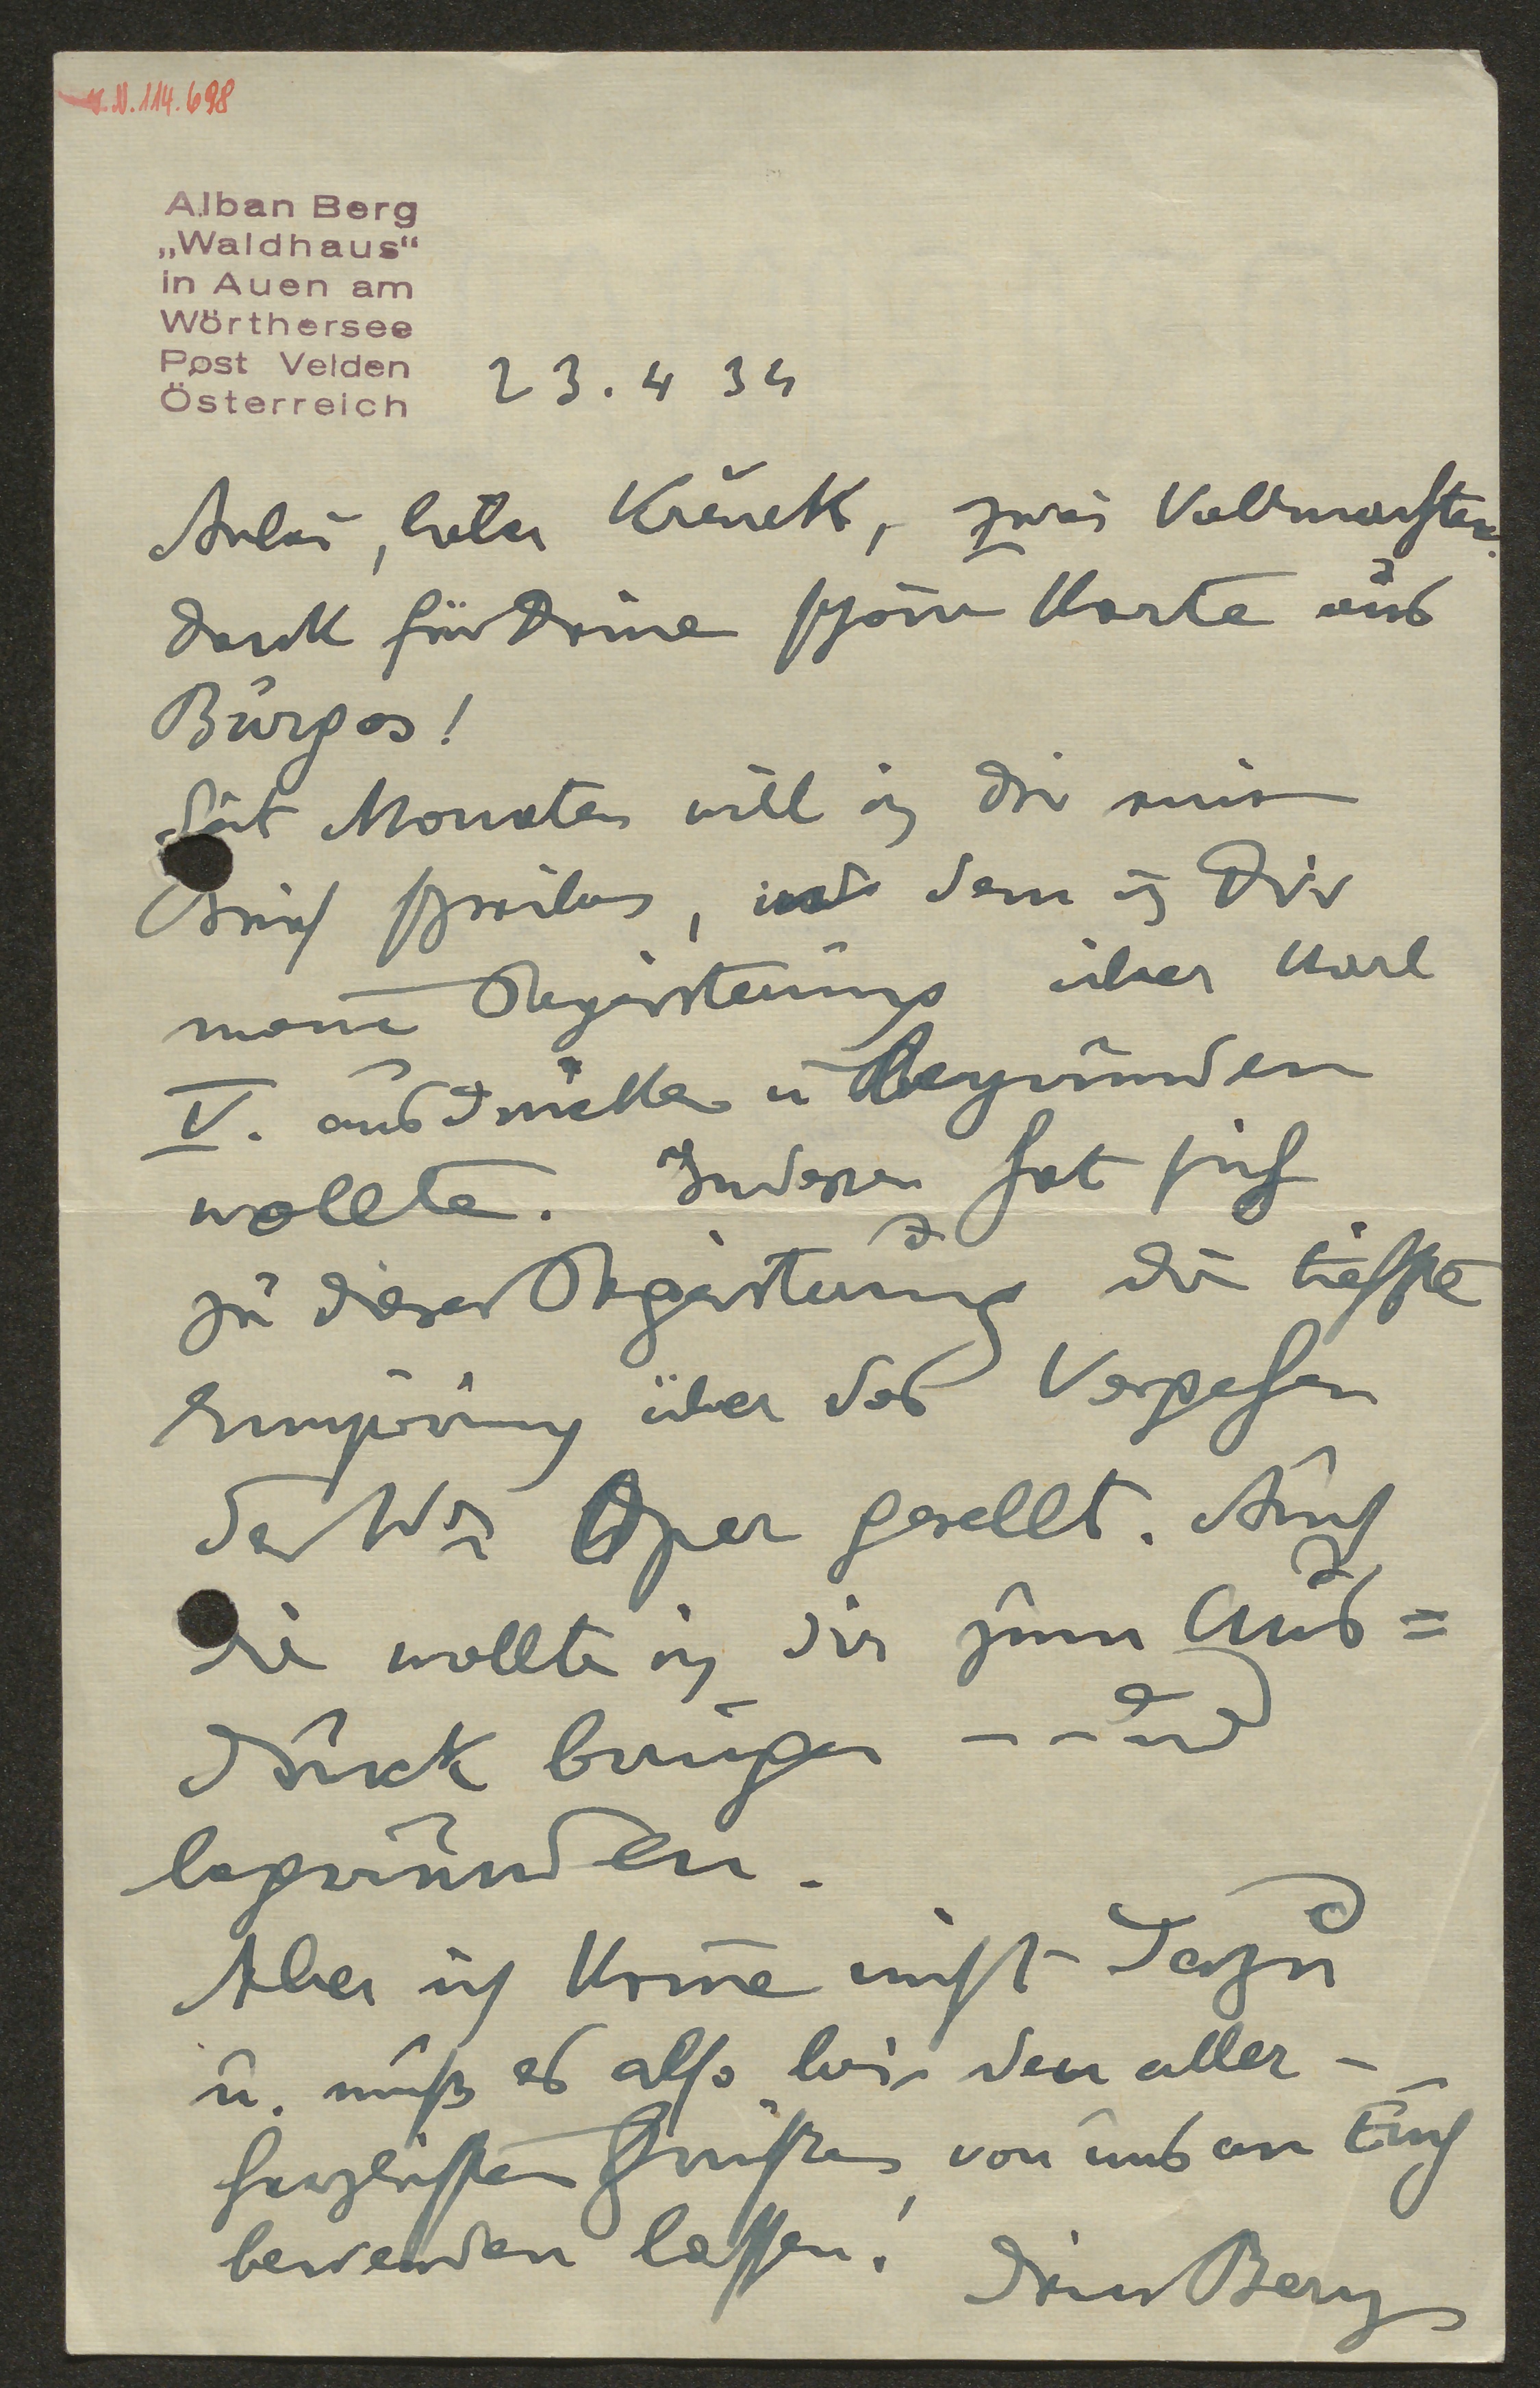 H.N.114.698
Alban Berg
„Waldhaus“
in Auen am
Wörthersee
Post Velden
Österreich
23.4 34
Anbei, lieber Krenek, zwei Vollmachten.
Dank für Deine schöne Karte aus
Burgos!
Seit Monaten will ich Dir einen
Brief schreiben, in dem ich Dir
meine Begeisterung über Karl
V. ausdrücken u begründen
wollte. Indessen hat sich
zu dieser Begeisterung die tiefste
Empörung über das Vorgehen
der Wr Oper gesellt. Auch
die wollte ich Dir zum Aus=
druck bringen - - und
begründen.
Aber ich komme nicht dazu
u. muß es also bei den aller-
herzlichsten Grüßen von uns an Euch
bewenden lassen!
Dein Berg